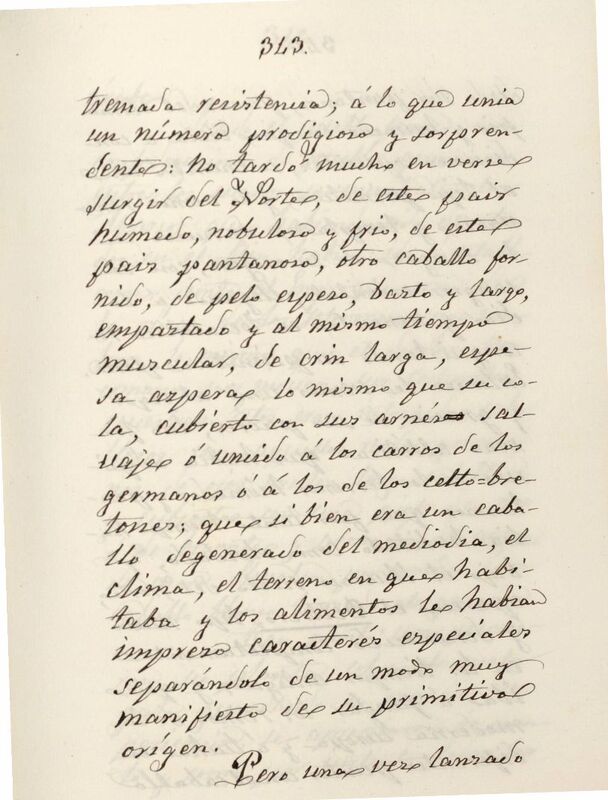 343.
tremada resistencia; á lo que unia
un número prodigioso y sorpren-
dente: no tardó mucho en verse
surgir del Norte, de este pais
húmedo, nobuloso y frio, de este
pais pantanoso, otro caballo for-
nido, de pelo espeso, basto y largo,
empastado y al mismo tiempo
muscular, de crin larga, espe-
sa aspera lo mismo que su co-
la, cubierto con sus arnés sal-
vaje ó uncido á los carros de los
germanos ó á los de los celto=bre-
tones; que si bien era un caba-
llo degenerado del mediodia, el
clima, el terreno en que habi-
taba y los alimentos le habian
impreso caractéres especiales
separándolo de un modo muy
manifiesto de su primitivo
orígen.
Pero una vez lanzado